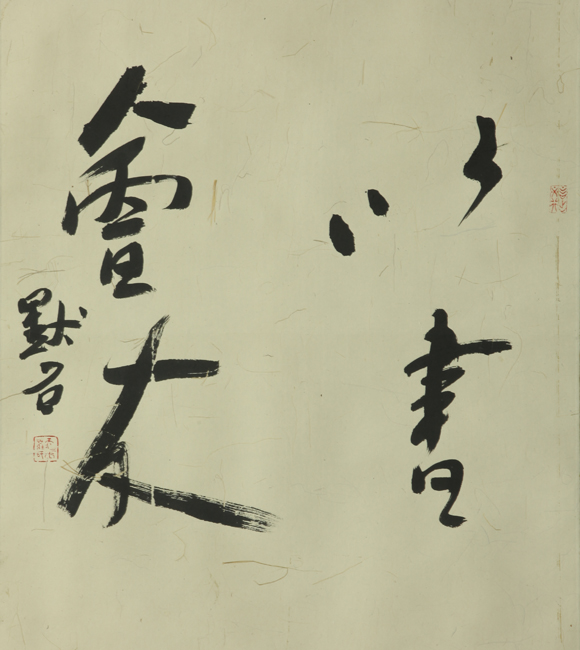 以書
會友
默